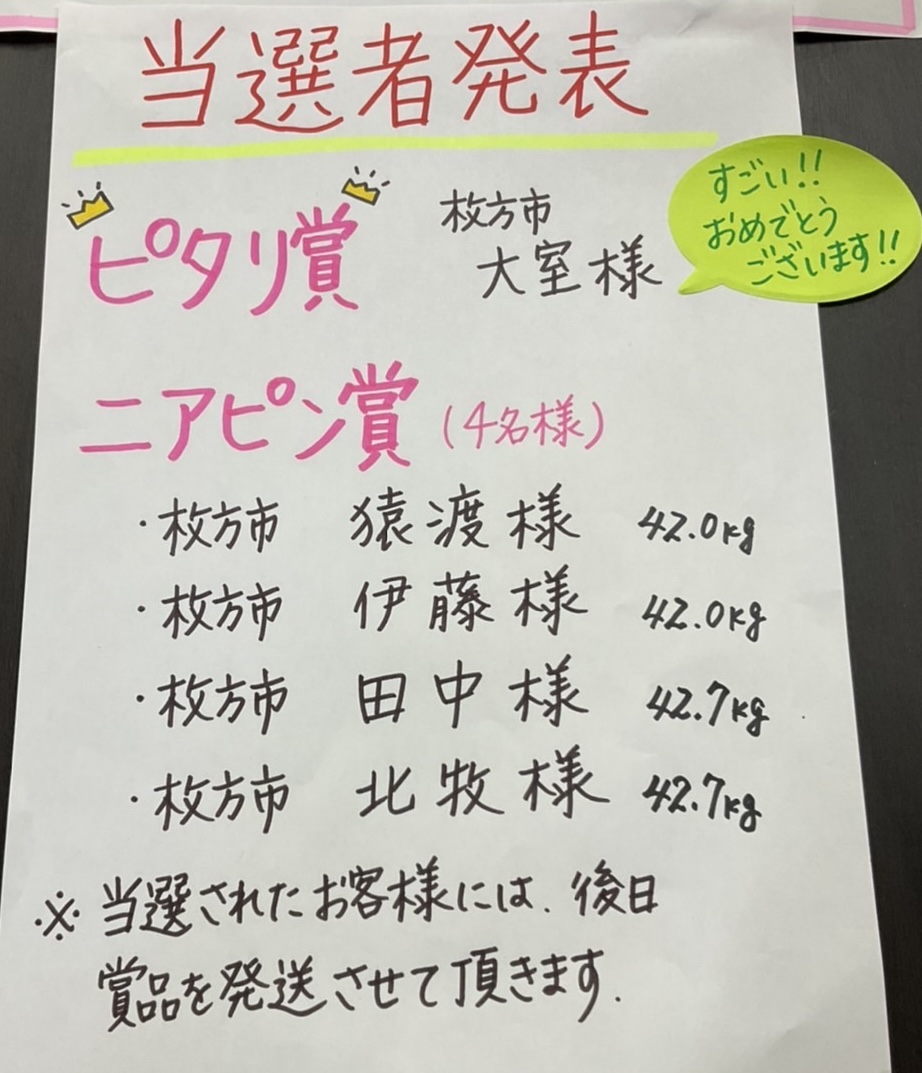 当選者発表
ピタリ賞
枚方市
大室様
すごい!!
おめでとう
ございます!!
ニアピン賞(4名様)
・枚方市 猿渡様 42.0kg
・枚方市 伊藤様 42.0kg
・枚方市 田中様 42.7kg
・枚方市 北牧様 42.7kg
※当選されたお客様には、後日
賞品を発送させて頂きます.